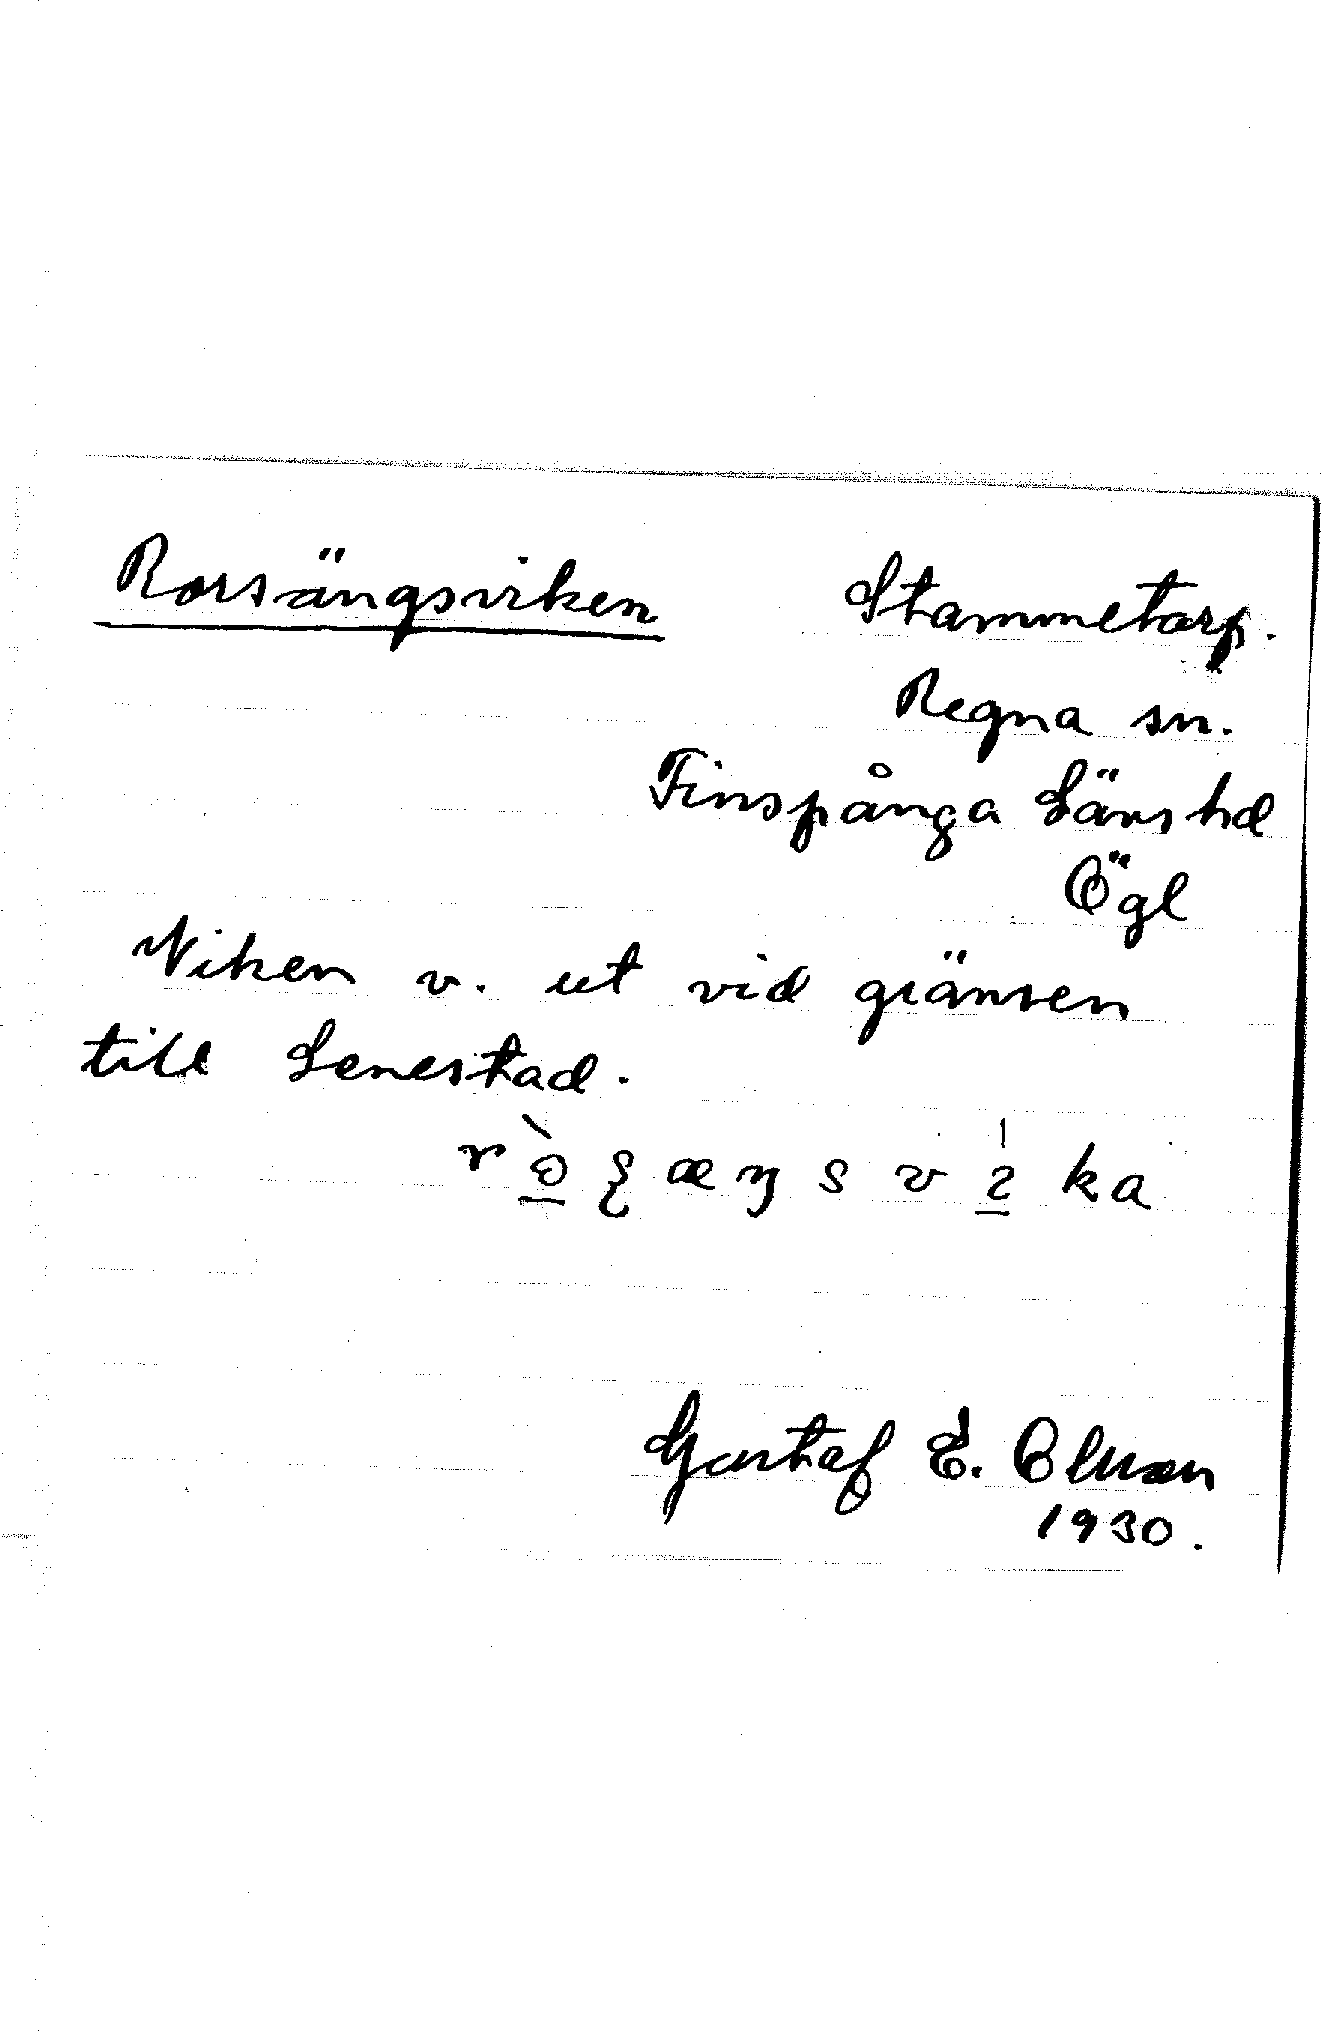 Rorsängsviken Stammetorp.
Regna sn.
Finspånga Läns hd
Ögl
Viken v. ut vid gränsen
till Lenestad.
Gustaf E. Olsson
1930.